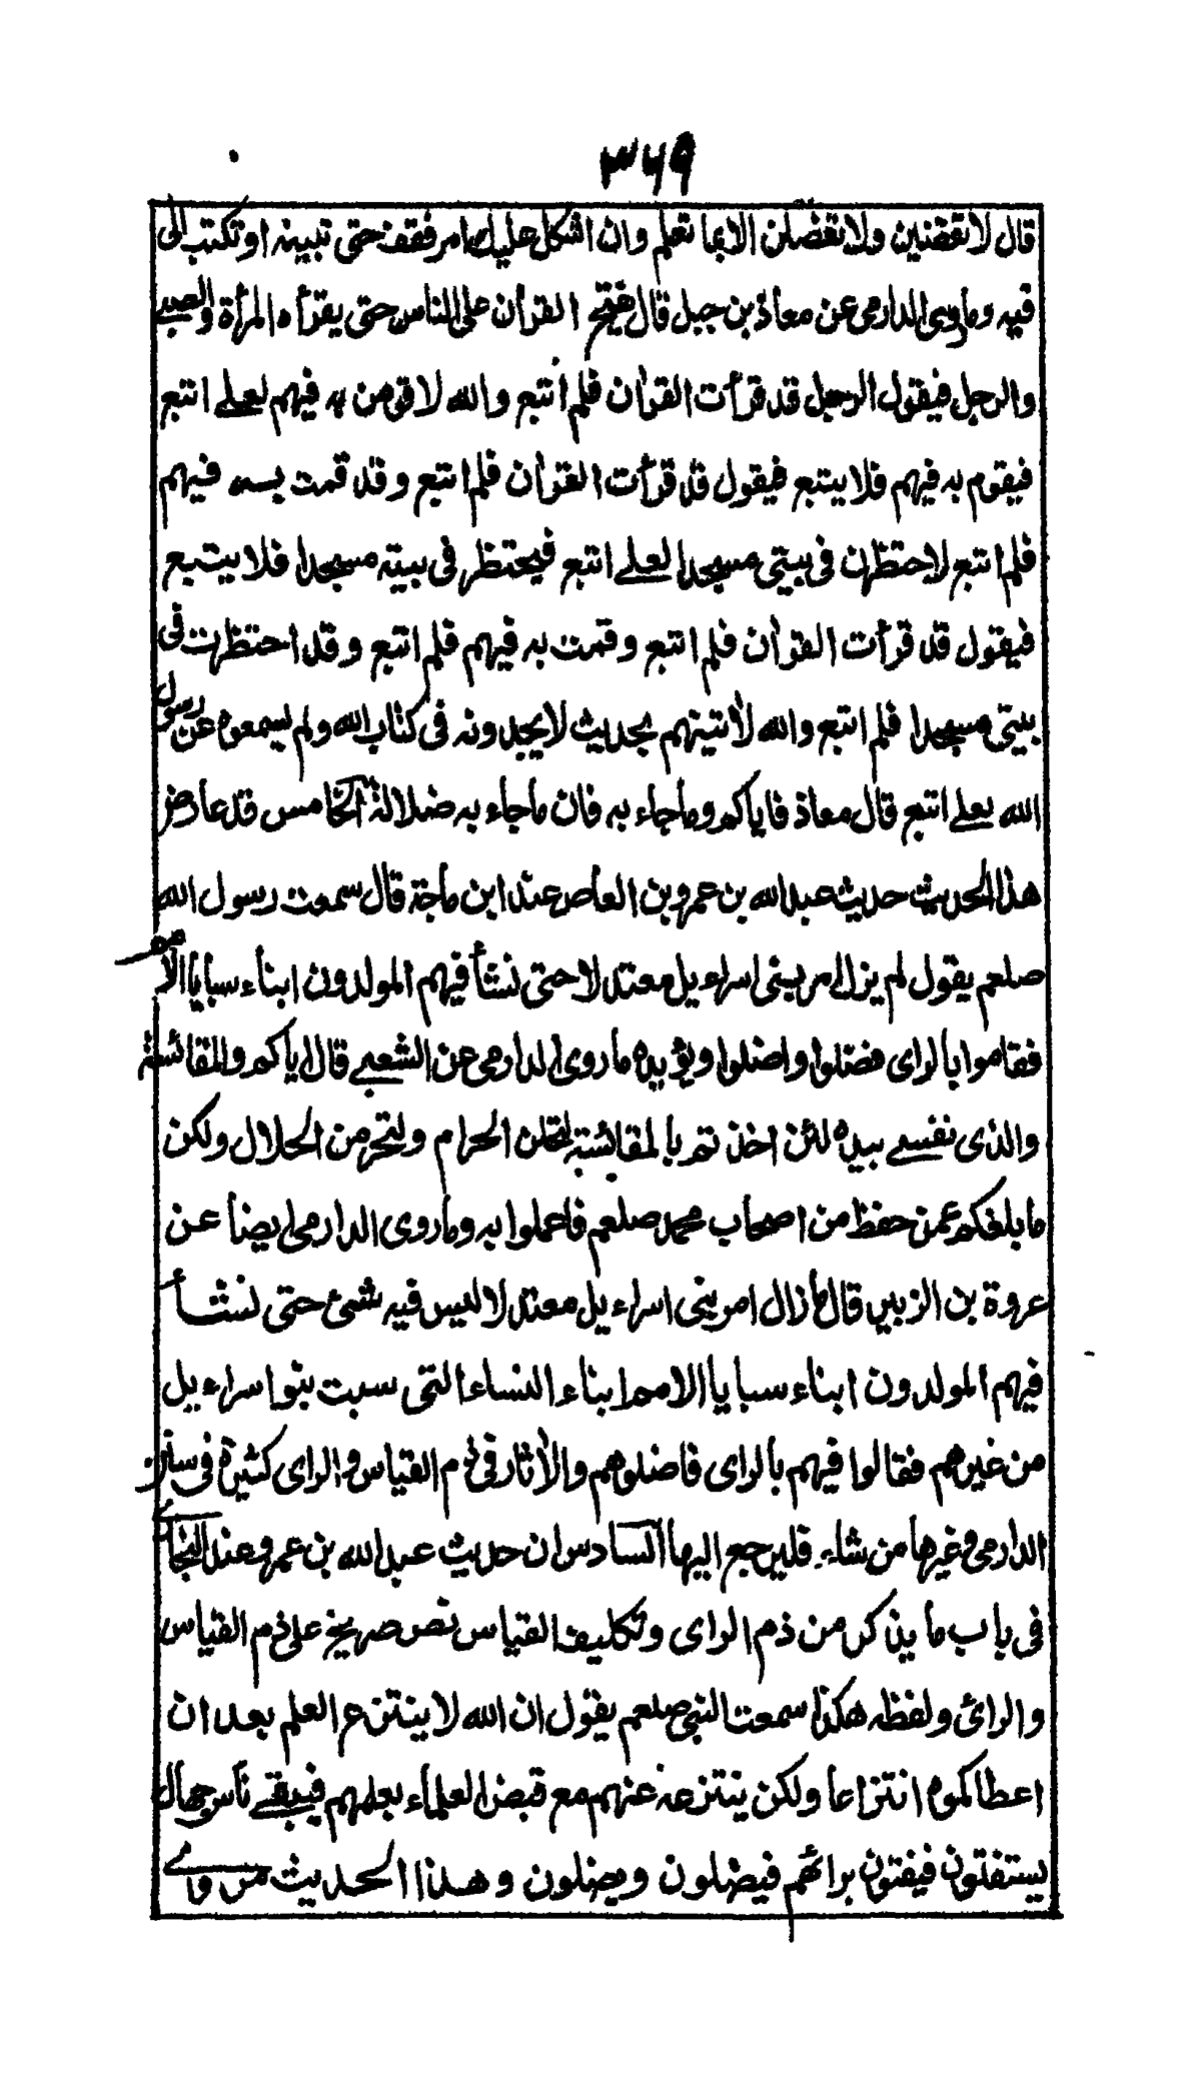 ٣٦٩
قال لا تقضنين ولا تفصلن الا بما تعلم وان اشكل عليك امر فقف حتى تبينه او تكتب الى
فيه وما روى الدارمى عن معاذ بن جبل قال يفتح القرآن على الناس حتى يقرأه المرأة والصبے
والرجل فيقول الرجل قد قرأت القرآن فلم أتبع والله لاقومن به فيهم لعلے اتبع
فيقوم به فيهم فلا يتبع فيقول قد قرأت القرآن فلم اتبع وقد قمت به فيهم
فلم اتبع لاحتظرن فى بيتى مسجدا لعلے اتبع فيحتظر فى بيته مسجدا فلا يتبع
فيقول قد قرأت القرآن فلم اتبع وقمت به فيهم فلم اتبع وقد احتظرت فى
بيتى مسجدا فلم اتبع والله لأتينهم بحديث لا يجدونه فى كتاب الله ولم يسمعوه عن رسول
الله لعلے اتبع قال معاذ فاياكم وما جاء به فان ما جاء به ضلالة الخامس قد عارض
هذا الحديث حديث عبد الله بن عمرو بن العاص عند ابن ماجة قال سمعت رسول الله
صلعم يقول لم يزل امر بنى اسراءيل معتدلا حتى نشأ فيهم المولدون ابناء سبايا الامم
فقاموا بالراى فضلوا واضلوا ويؤيده ما روى الدارمى عن الشعبے قال اياكم والمقائسة
والذى نفسے بيده لئن اخذتم بالمقائسة لتحلن الحرام ولتحرمن الحلال ولكن
ما بلغكم عمن حفظ من اصحاب محمد صلعم فاعملوا به وما روى الدارمى ايضا عن
عروة بن الزبير قال ما زال امر بنى اسراءيل معتدلا ليس فيه شئ حتى نشأ
فيهم المولدون ابناء سبايا الامم ابناء النساء التى سبت بنو اسراءيل
من غيرهم فقالوا فيهم بالراى فاضلوهم والآثار فى ذم القياس والراى كثيرة فى سنن
الدارمى وغيرها من شاء فليرجع اليها السادس ان حديث عبد الله بن عمرو عند البخارے
فى باب ما يذكر من ذم الراى وتكليف القياس نص صريح على ذم القياس
والرائ ولفظه هكذا سمعت النبى صلعم يقول ان الله لا ينتزع العلم بعد ان
اعطاكموه انتزاعا ولكن ينتزعه عنهم مع قبض العلماء بعلمهم فيبقے ناس جهال
يستفتون فيفتون برائهم فيضلون ويضلون وهذا الحديث مروے